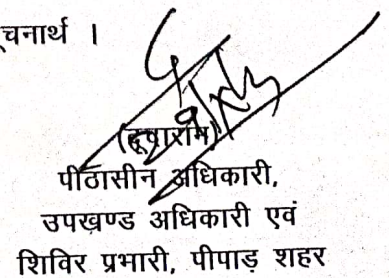 सूचनार्थ ।
पीठासीन अधिकारी,
उपखण्ड अधिकारी एवं
शिविर प्रभारी, पीपाड़ शहर